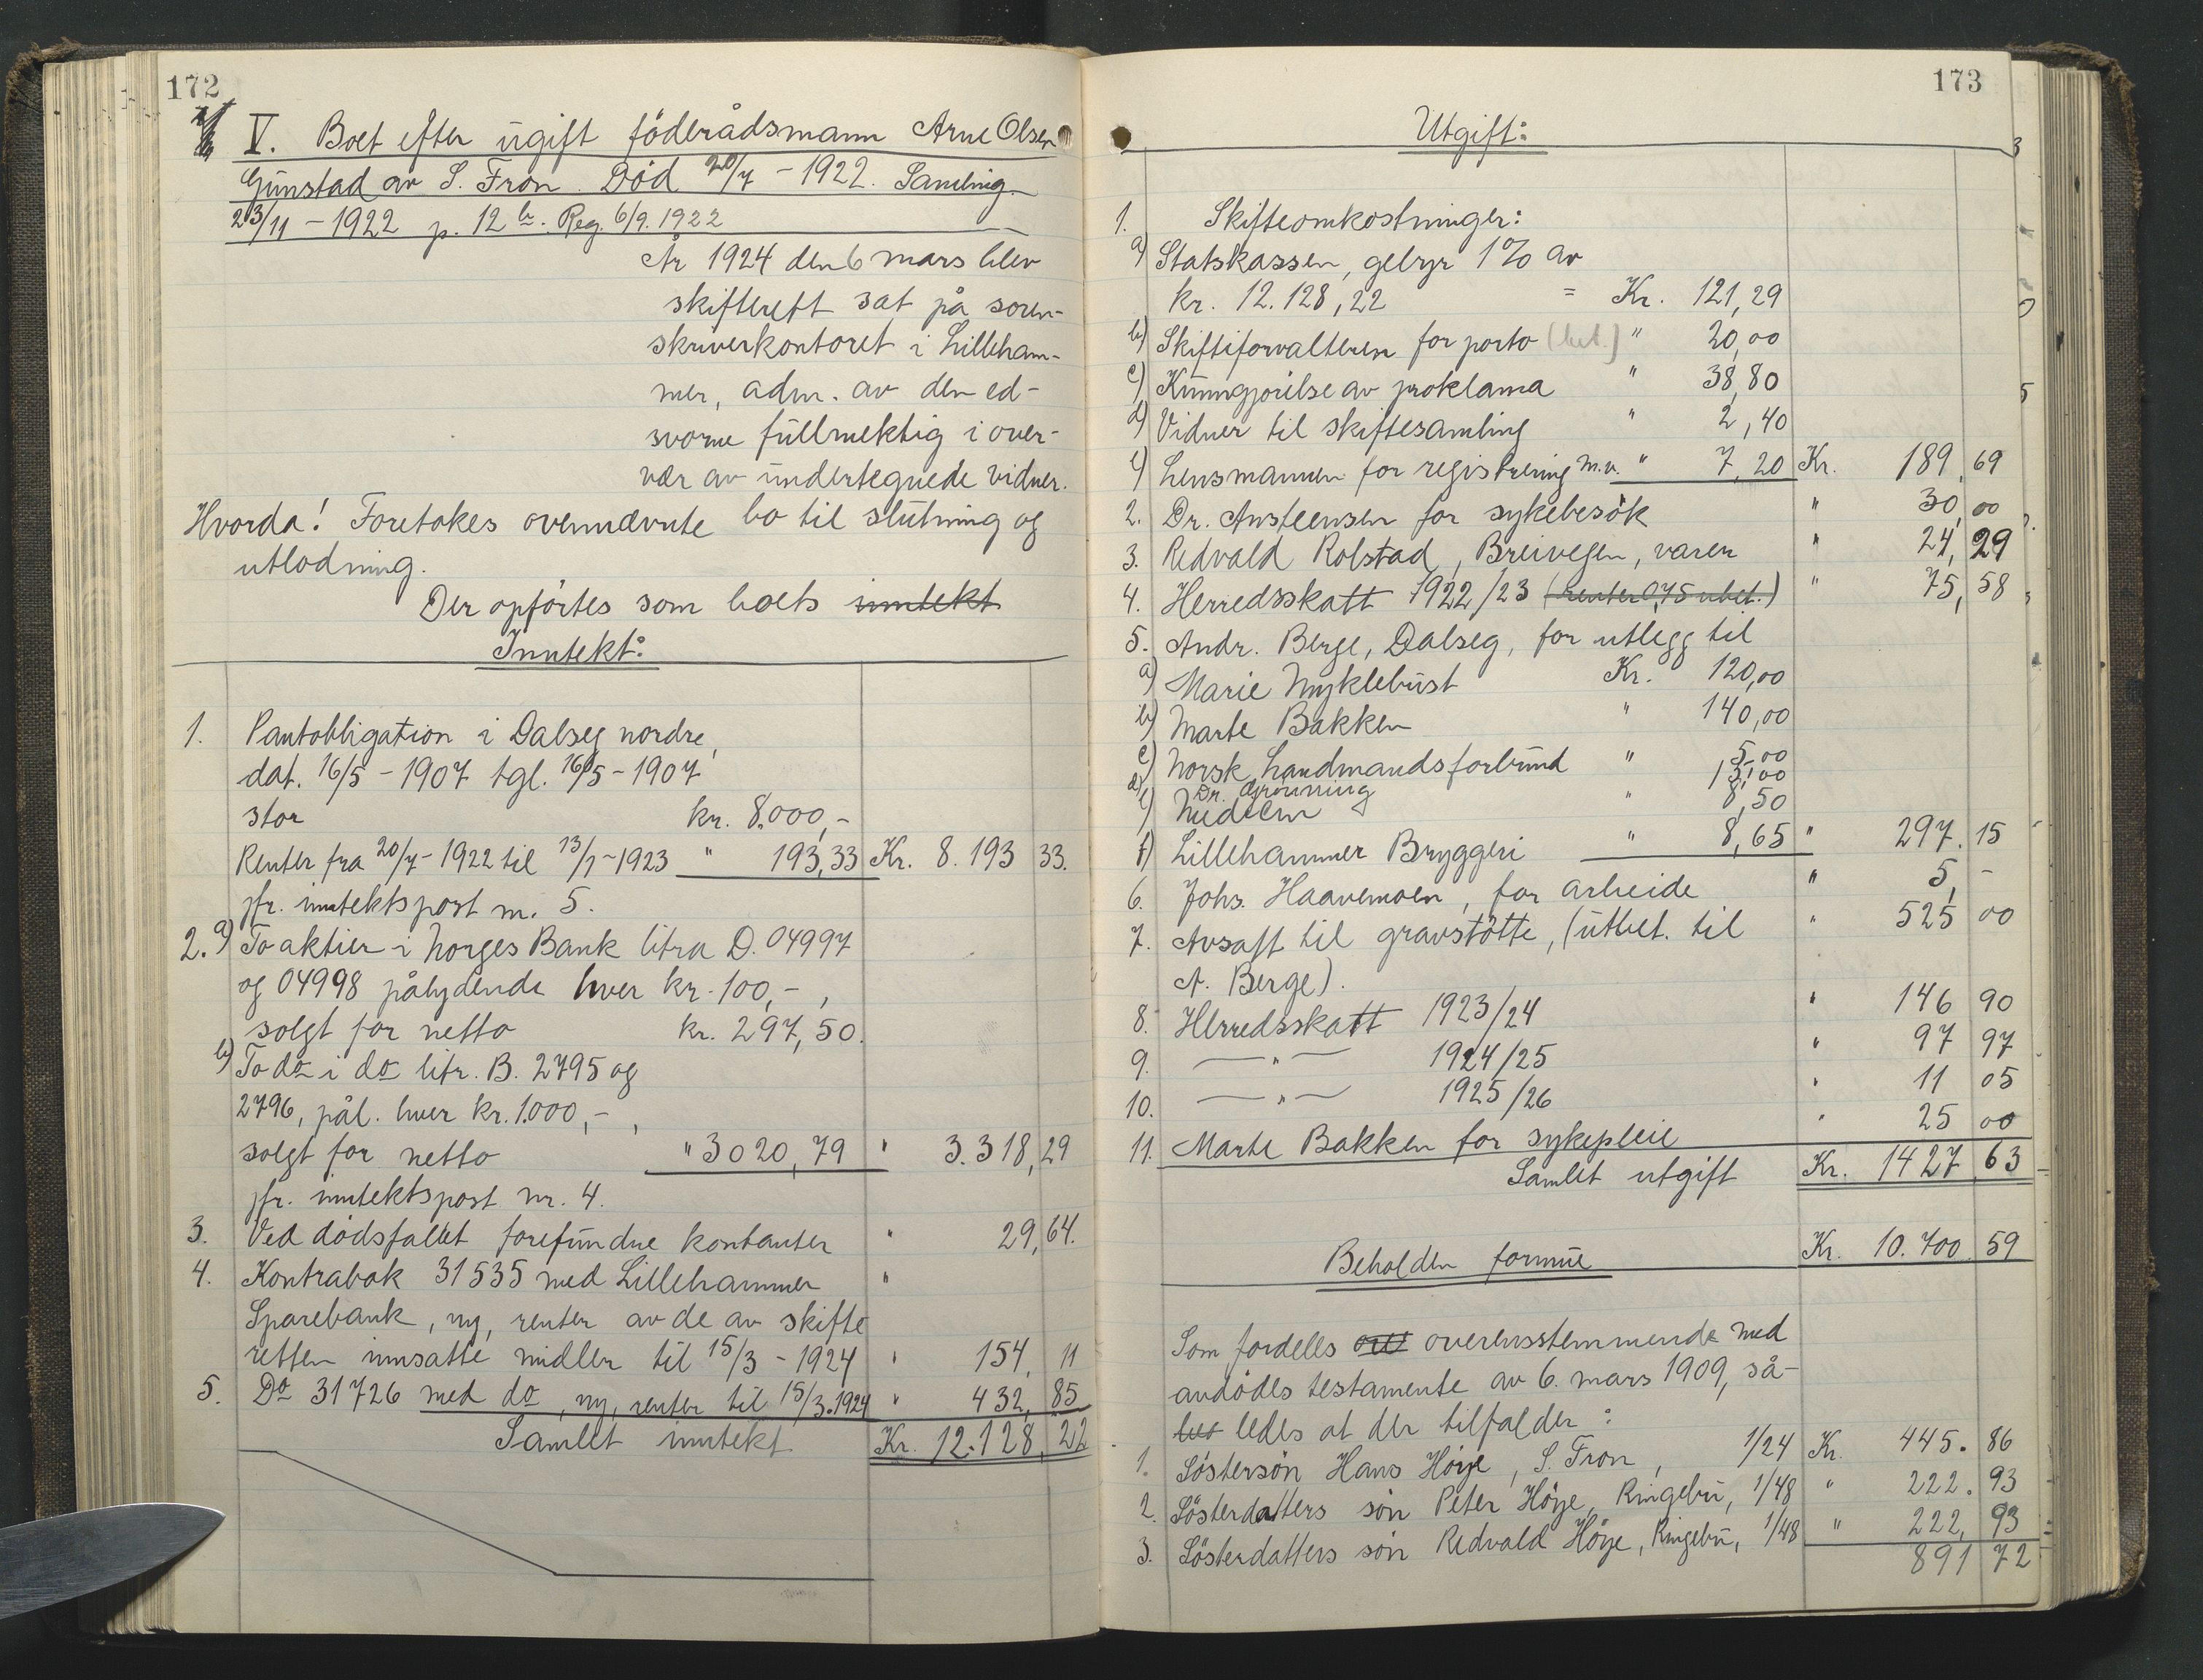 172
V. Boet efter ugift föderådsmann Arne Olsen
Gunstad av S. Fron. Död 20/7 - 1922. Samling
23/11 - 1922 p. 12 b. Reg. 6/9. 1922
År 1924 den 6 mars blev
skifterett sat på soren-
skriverkontoret i Lilleham-
mer, adm. av den ed-
svorne fullmektig i over-
vær av undertegnede vidner.
Hvorda! Foretokes ovennævnte bo til slutning og
utlodning.
Der opförtes som boets inntekt
Inntekt:
1. Pantobligation i Dalseg nordre,
dat. 16/5 - 1907 tgl. 16/5 - 1907
stor kr. 8.000,-
Renter fra 20/7 - 1922 til 13/1 - 1923 " 193,33 Kr. 8.193 33.
jfr. inntektspost nr. 5.
2. a) To aktier i Norges Bank litra D. 04997
og 04998 pålydende hver kr. 100,-,
solgt for netto kr. 297,50.
b) To do i do litr. B. 2795 og
2796, pål. hver kr. 1.000,-,
solgt for netto " 3020,79 " 3.318,29
jfr. inntektspost nr. 4.
3. Ved dödsfallet forefundne kontanter " 29,64.
4. Kontrabok 31535 med Lillehammer "
Sparebank, ny, renter av de av skifte
retten innsatte midler til 15/3 - 1924 " 154, 11
5. Do 31726 med do, ny, renter til 15/3.1924 " 432,85
Samlet inntekt Kr. 12.128,22
173
Utgift:
1. Skifteomkostninger:
a) Statskassen, gebyr 1% av
kr. 12.128,22 = Kr. 121,29
b) Skifteforvalteren for porto (bet.) " 20,00
c) Kunngjörelse av proklama " 38,80
d) Vidner til skiftesamling " 2,40
e) Lensmannen for registrering m.v. " 7,20 Kr. 189,69
2. Dr. Ansteensen for sykebesök " 30,00
3. Redvald Rolstad, Breivegen, varer " 24,29
4. Herredsskatt 1922/23 (renter 0,75 ubet.) " 75,58
5. Andr. Berge, Dalseg, for utlegg til
a) Marie Myklebust Kr. 120,00
b) Marte Bakken " 140,00
c) Norsk Landmandsforbund " 5,00
d) Dr. Grönning 15,00
e) Medeln " 8,50
f) Lillehammer Bryggeri " 8,65 " 297.15
6. Johs. Haavemoen, for arbeide " 5,-
7. Avsatt til gravstötte, (utbet. til " 525 00
A. Berge).
8. Herredsskatt 1923/24 " 146 90
9. — " — 1924/25 " 97 97
10. — " — 1925/26 " 11 05
11. Marte Bakken for sykepleie " 25 00
Samlet utgift Kr. 1427.63
Beholden formue Kr. 10.700.59
Som fordeles ove overensstemmende med
avdödes testamente av 6. mars 1909, så-
les ledes at der tilfalder:
1. Söstersön Hans Höye, S. Fron, 1/24 Kr. 445.86
2. Sösterdatters sön Peter Höye, Ringebu, 1/48 " 222.93
3. Sösterdatters sön Redvald Höye, Ringebu, 1/48 " 222,93
891 72